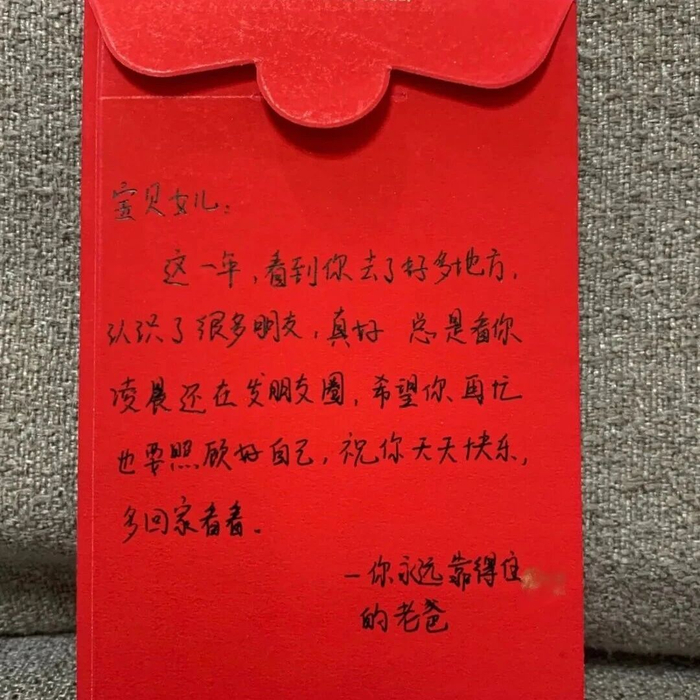 宝贝女儿：
这一年，看到你去了好多地方，
认识了很多朋友，真好 总是看你
凌晨还在发朋友圈，希望你再忙
也要照顾好自己，祝你天天快乐，
多回家看看。
—你永远靠得住
的老爸